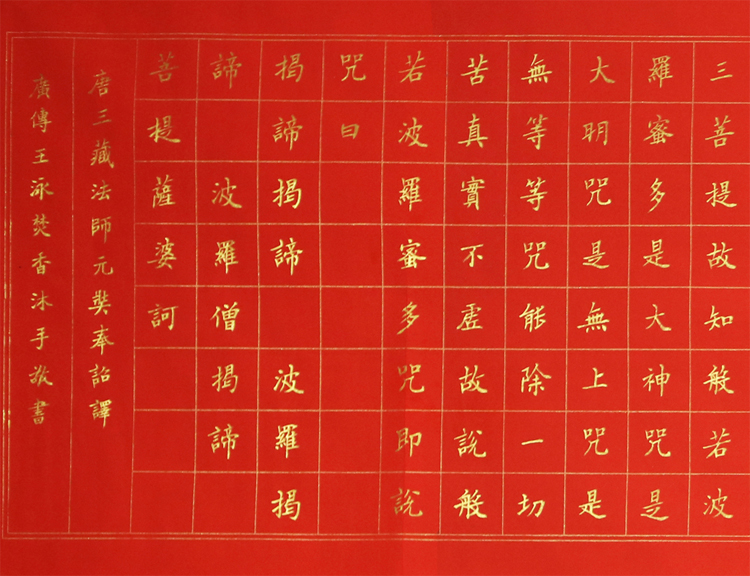 三菩提故知般若波
羅蜜多是大神咒是
大明咒是無上咒是
無等等咒能除一切
苦真實不虛故說般
若波羅蜜多咒即說
咒曰
揭諦揭諦 波羅揭
諦 波羅僧揭諦
菩提薩婆訶
唐三藏法師元奘奉詔譯
廣傳王泳焚香沐手敬書